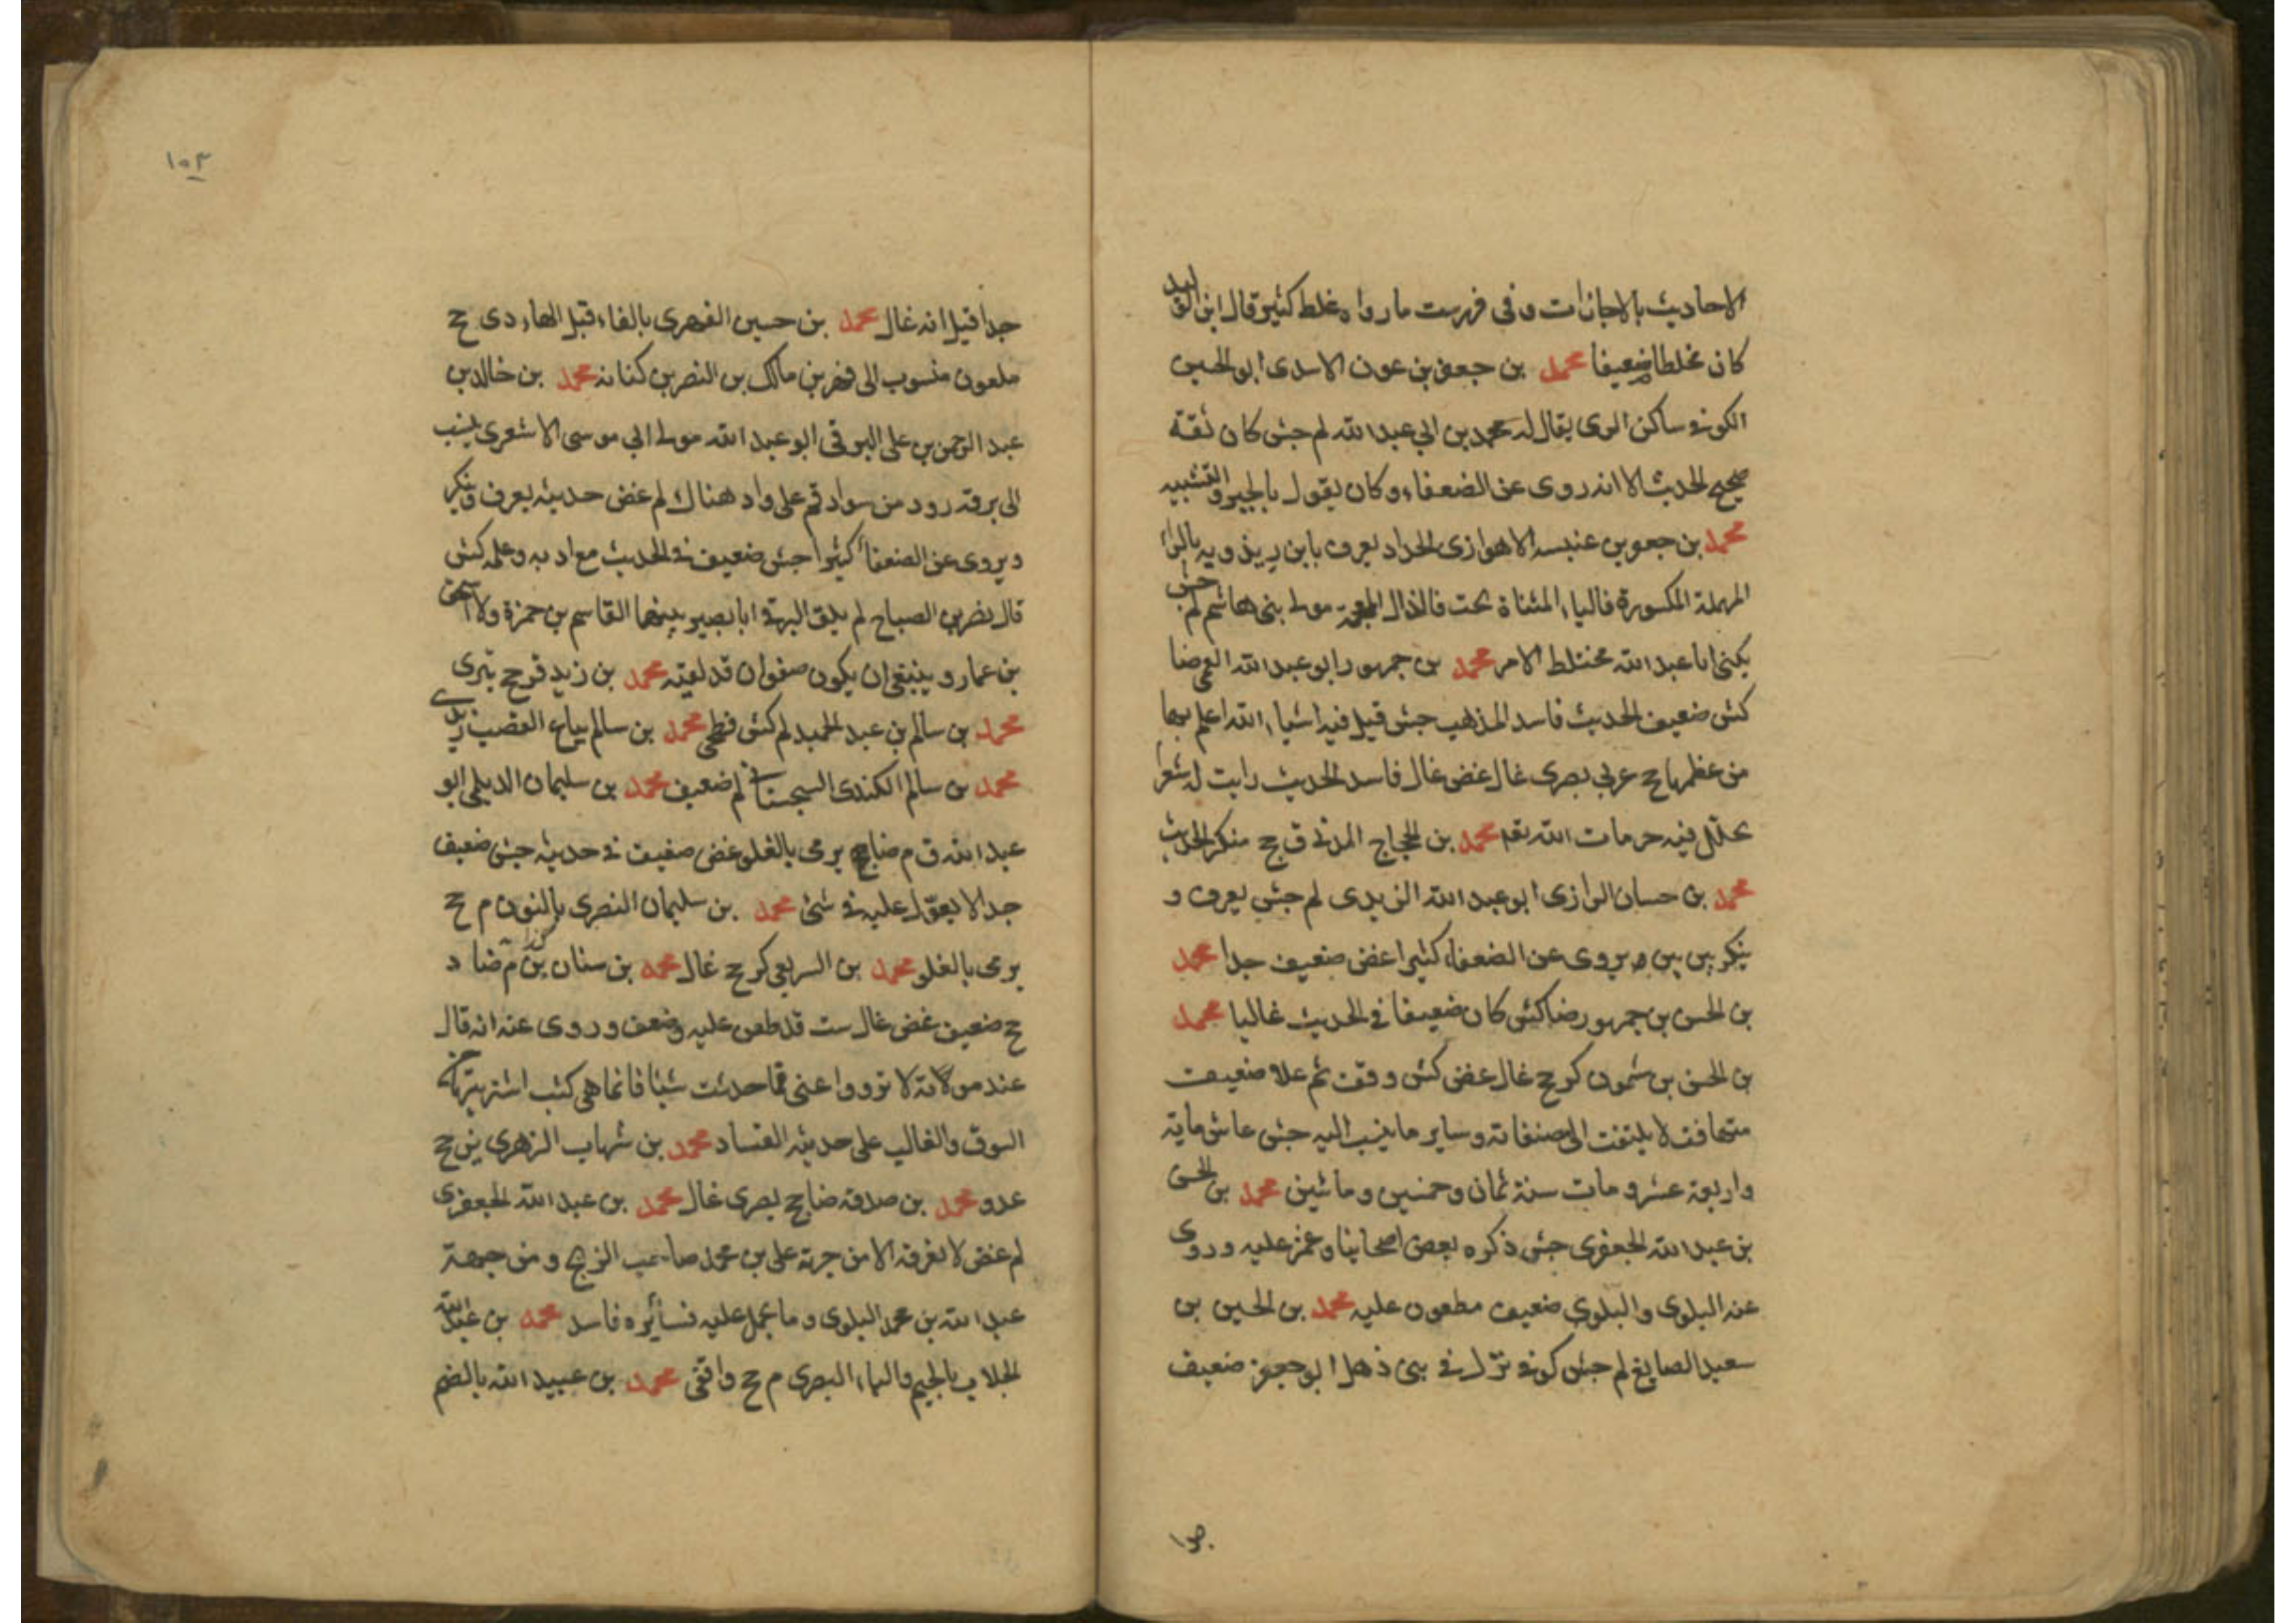 الاحاديث بالاجازات وفى فهرست مارواه غلط كثير وقال ابن الوليد
كان مخلطا ضعيفا محمد بن جعفر بن عون الاسدى ابو الحسين
الكوفى ساكن الرى يقال له محمد بن ابي عبد الله لم جش كان ثقة
صحيح الحديث الا انه روى عن الضعفاء وكان يقول بالجبر والتشبيه
محمد بن جعفر بن عنبسه الاهوازى الحداد يعرف بابن ريذويه بالراء
المهملة المكسورة فالياء المثناة تحت فالذال المعجمة مولى بنى هاشم لم جش
يكنى ابا عبد الله مختلط الامر محمد بن جمهور ابو عبد الله العمى ضا
كش ضعيف الحديث فاسد المذهب جش قيل فيه اشياء الله اعلم بها
من عظمها ح عربي بصرى غال غض غال فاسد الحديث رايت له شعرا
يحلل فيه حرمات الله تعه محمد بن الحجاج المدنى ق ح منكر الحديث
محمد بن حسان الرازى ابو عبد الله الزيدى لم جش يعرف و
ينكر بين بين ويروى عن الضعفاء كثيرا غض ضعيف جدا محمد
بن الحسن بن جمهور ضا كش كان ضعيفا فى الحديث غاليا محمد
بن الحسن بن شمون كر ح غال غض كش وقف ثم غلا ضعيف
متهافت لا يلتفت الى مصنفاته وساير ما ينسب اليه جش عاش ماية
واربعة عشر ومات سنة ثمان وخمسين وماتين محمد بن الحسن
بن عبد الله الجعفرى جش ذكره بعض اصحابنا وغمز عليه وروى
عنه البلوى والبلوى ضعيف مطعون عليه محمد بن الحسين بن
سعيد الصايغ لم جش كوفى نزل فى بنى ذهل ابو جعفر ضعيف
١٠٣
جدا قيل انه غال محمد بن حسين الفهرى بالفاء قبل الهاء دى ح
ملعون منسوب الى فهر بن مالك بن النضر بن كنانه محمد بن خالد بن
عبد الرحمن بن على البرقى ابو عبد الله مولى ابي موسى الاشعرى ينسب
الى برقه رود من سواد قم على واد هناك لم غض حديثه يعرف وينكر
ويروى عن الضعفاء كثيرا جش ضعيف فى الحديث مع ادبه وعلمه كش
قال نصر بن الصباح لم يلق البرقى ابا بصير بينهما القاسم بن حمزة ولا اسحق
بن عمار وينبغى ان يكون صفوان قد لقيه محمد بن زيد قر ح بترى
محمد بن سالم بن عبد الحميد لم كش فطحى محمد بن سالم بياع القصب زيدى
محمد بن سالم الكندى السجستانى لم ضعيف محمد بن سليمان الديلمى ابو
عبد الله ق م ضا ح يرمى بالغلو غض ضعيف فى حديثه جش ضعيف
جدا لا يعول عليه فى شئ محمد بن سليمان النصرى بالنون م ح
يرمى بالغلو محمد بن السريعى كر ح غال محمد بن سنان م ضا د
ح ضعيف غض غال ست قد طعن عليه وضعف وروى عنه انه قال
عند موته لا ترووا عنى مما حدثت شيئا فانما هى كتب اشتريتها من
السوق والغالب على حديثه الفساد محمد بن شهاب الزهرى ين ح
عدو محمد بن صدقه ضا ح بصرى غال محمد بن عبد الله الجعفرى
لم غض لا نعرفه الا من جهة على بن محمد صاحب الزنج ومن جهة
عبد الله بن محمد البلوى وما يحمل عليه فسائره فاسد محمد بن عبد الله
الجلاب بالجيم والباء البصرى م ح واقفى محمد بن عبيد الله بالضم